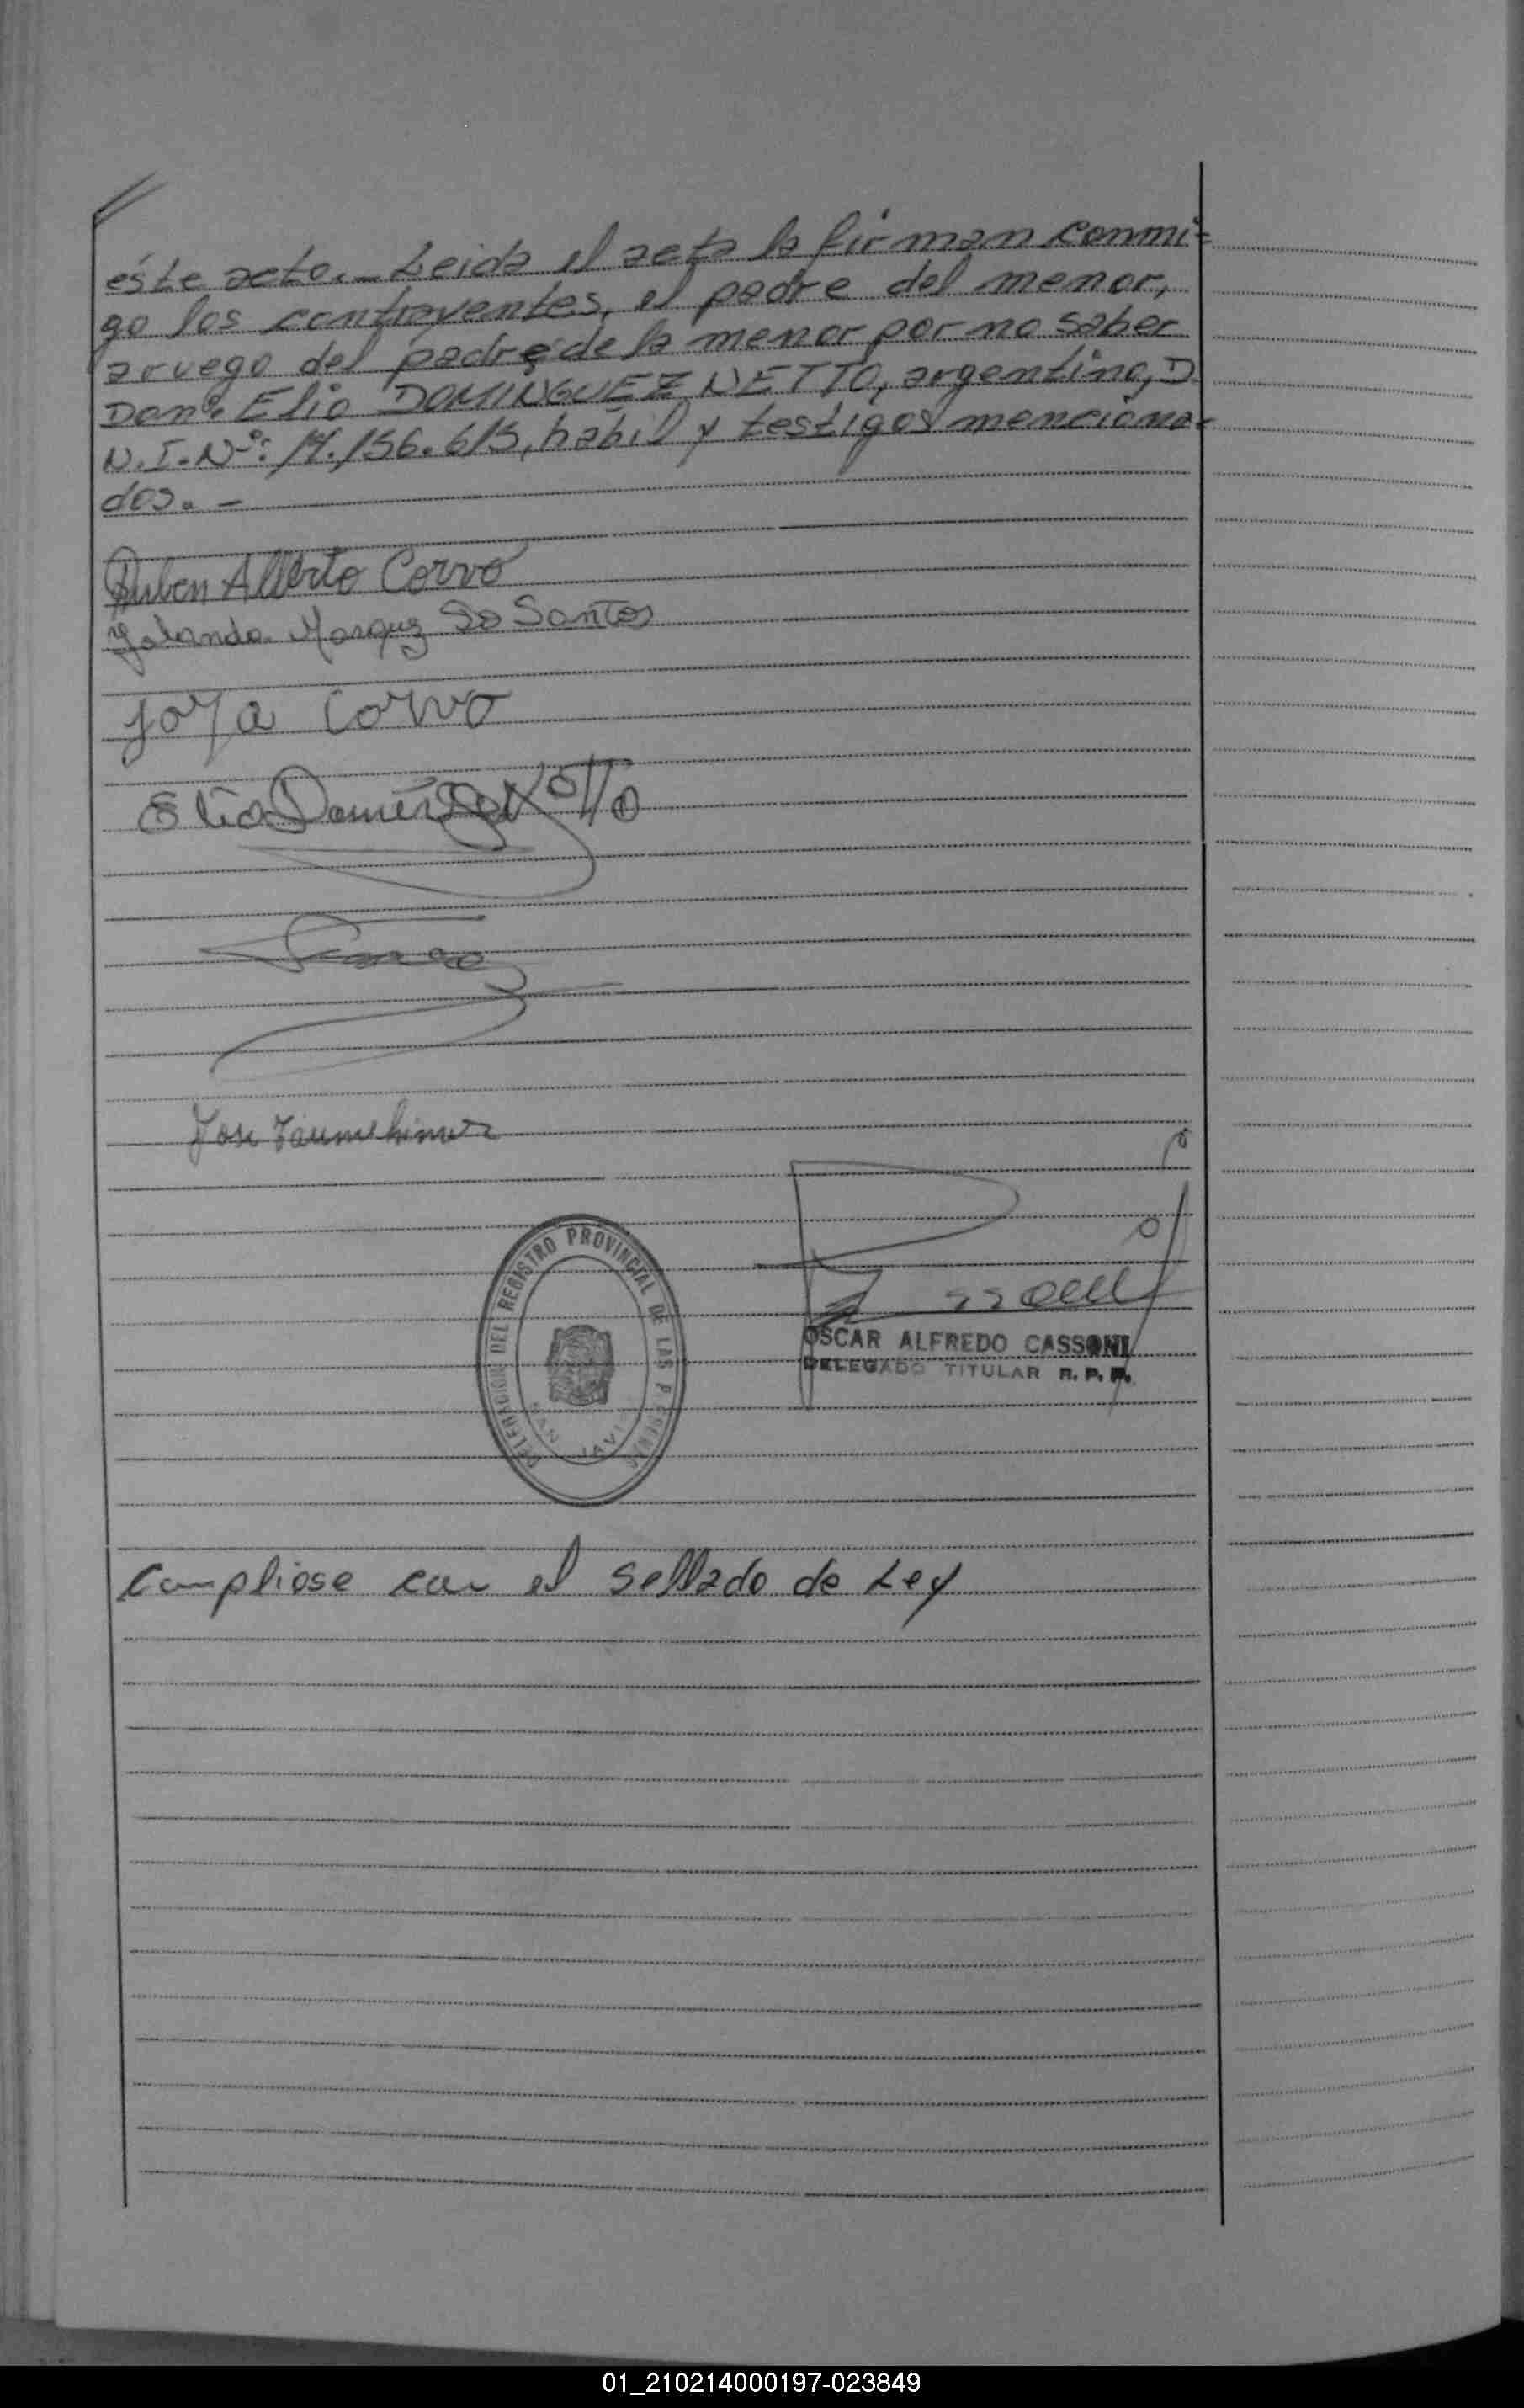 éste acto.- Leida el acta la firman conmi-
go los contrayentes, el padre del menor,
a ruego del padre de la menor por no saber
Don: Elio DOMINGUEZ NETTO, argentino, D.
N.I.Nº: 14.156.615, habil y testigos menciona-
dos.-
Ruben Alberto Corvo
Yolanda Marquez Do Santos
Corvo
Elio Domínguez Netto
Jose
DELEGACION DEL REGISTRO PROVINCIAL DE LAS PERSONAS
SAN JAVIER
OSCAR ALFREDO CASSONI
DELEGADO TITULAR R. P. P.
Cumpliose con el sellado de Ley
01_210214000197-023849